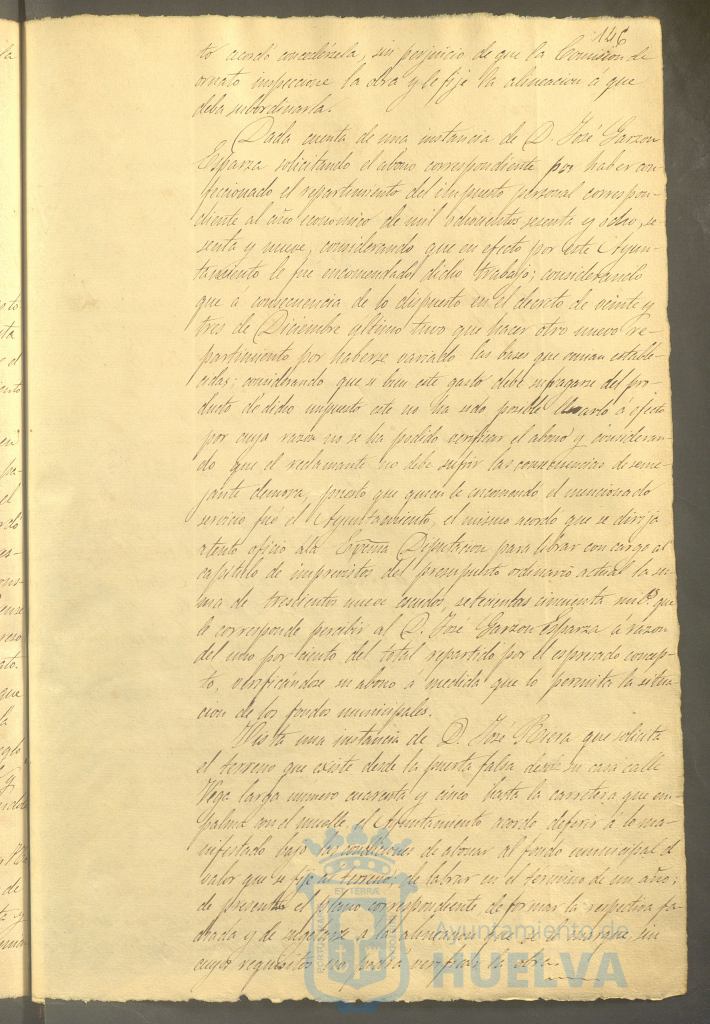 146
to acordó concedérsela, sin perjuicio de que la Comision de
ornato inspeccione la obra y le fije la alineacion á que
deba subordinarla.
Dada cuenta de una instancia de D. José Garzon
Esparza solicitando el abono correspondiente por haber con-
feccionado el repartimiento del impuesto personal correspon-
diente al año económico de mil ochocientos sesenta y ocho, se-
senta y nueve, considerando que en efecto por este Ayun-
tamiento le fue encomendado dicho trabajo; considerando
que a consecuencia de lo dispuesto en el decreto de veinte y
tres de Diciembre último tuvo que hacer otro nuevo re-
partimiento por haberse variado las bases que venian estable-
cidas; considerando que si bien este gasto debe sufragarse del pro-
ducto de dicho impuesto este no ha sido posible llevarlo á efecto
por cuya razon no se ha podido verificar el abono y consideran-
do que el reclamante no debe sufrir las consecuencias de seme-
jante demora, puesto que quien le encomendó el mencionado
servicio fué el Ayuntamiento, el mismo acordó que se dirija
atento oficio á la Excma Diputacion para librar con cargo al
capítulo de imprevistos del presupuesto ordinario actual la su-
ma de trescientos nueve escudos, setecientas cincuenta mil.s que
le corresponde percibir al D. José Garzon Esparza á razon
del uno por ciento del total repartido por el espresado concep-
to, verificándose su abono a medida que lo permita la situa-
cion de los fondos municipales.
Vista una instancia de D. José Rivera que solicita
el terreno que existe desde la puerta falsa de su casa calle
Vega larga numero cuarenta y cinco hasta la carretera que em-
palma con el muelle, el Ayuntamiento acordó deferir a lo ma-
nifestado bajo las condiciones de abonar al fondo municipal el
valor que se fije al terreno, de labrar en el termino de un año;
de presentar el plano correspondiente de formar la respectiva fa-
chada y de sujetarse a la alineacion que se le marque sin
cuyos requisitos no podrá verificar la obra.
Ayuntamiento de
HUELVA